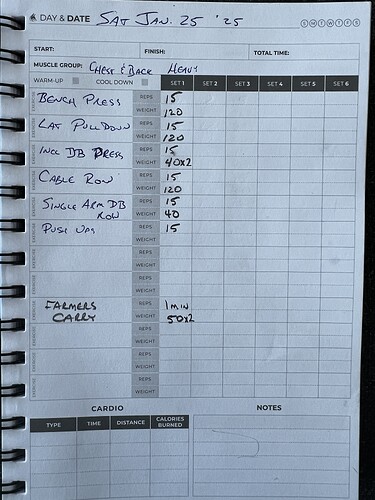 DAY & DATE SAT JAN. 25 '25 S M T W T F S
START: FINISH: TOTAL TIME:
MUSCLE GROUP: CHEST & BACK HEAVY
WARM-UP COOL DOWN SET 1 SET 2 SET 3 SET 4 SET 5 SET 6
EXERCISE BENCH PRESS REPS 15
WEIGHT 120
EXERCISE LAT PULLDOWN REPS 15
WEIGHT 120
EXERCISE INCL DB PRESS REPS 15
WEIGHT 40x2
EXERCISE CABLE ROW REPS 15
WEIGHT 120
EXERCISE SINGLE ARM DB REPS 15
ROW WEIGHT 40
EXERCISE PUSH UPS REPS 15
WEIGHT
EXERCISE REPS
WEIGHT
EXERCISE REPS
WEIGHT
EXERCISE FARMERS REPS 1 MIN
CARRY WEIGHT 50x2
EXERCISE REPS
WEIGHT
EXERCISE REPS
WEIGHT
EXERCISE REPS
WEIGHT
CARDIO NOTES
TYPE TIME DISTANCE CALORIES BURNED